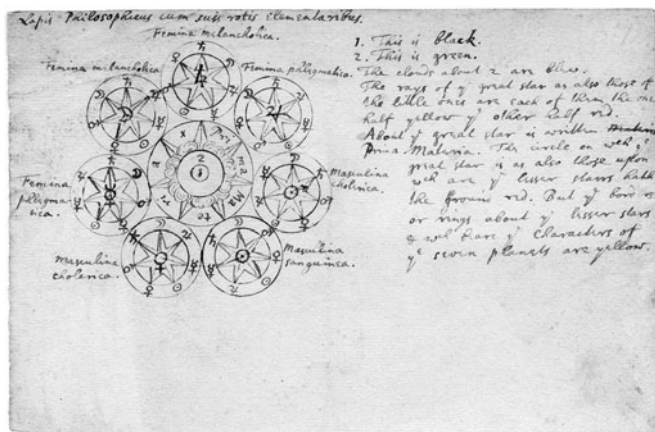 Lapis Philosophicus cum suis rotis elementaribus.
Femina melancholica.
Femina melancholica
Femina phlegmatica.
Femina
phlegma-
tica.
Masculina
cholerica.
Masculina
cholerica.
Masculina
sanguinea.
Prima Materia
2
1
1. This is black.
2. This is green.
The clouds about 2 are blew.
The rays of yͤ great star as also those of
the little ones are each of them the one
half yellow yͤ other half red.
About yͤ great star is written materia
Prima Materia. The circle on wch yͤ
great star is as also those upon
wch are yͤ lesser starrs hath
the ground red. But yͤ borders
or rings about yͤ lesser stars
& wch bare yͤ characters of
yͤ seven planets are yellow.